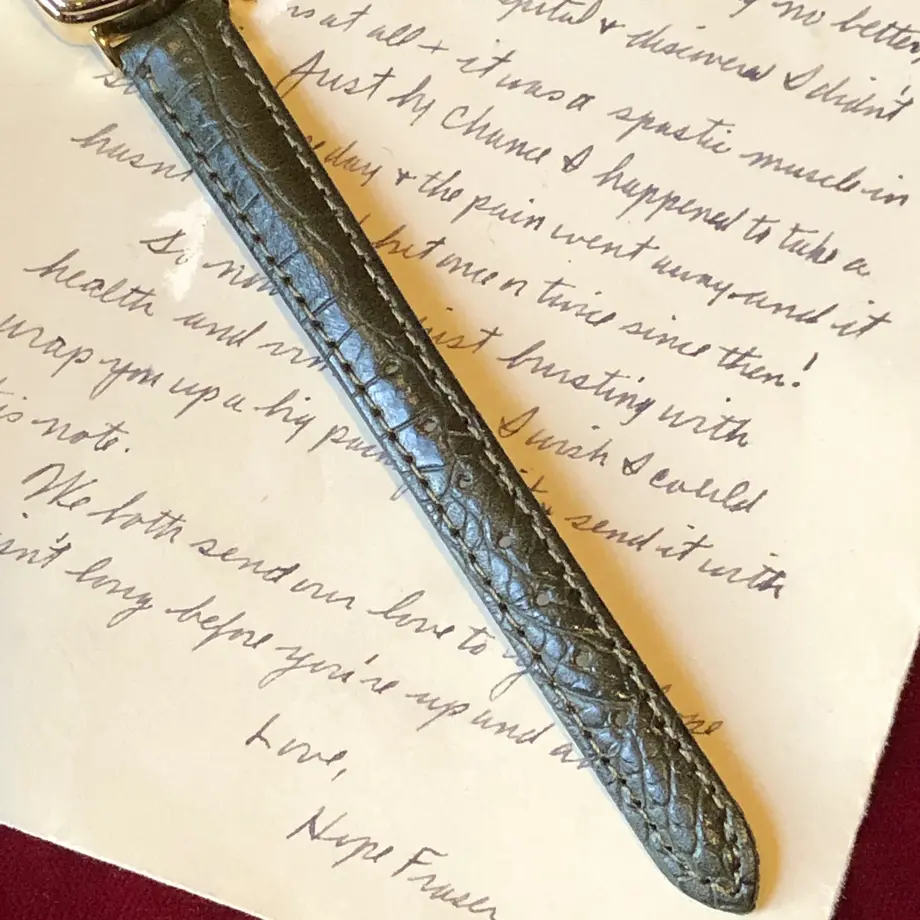 no better
hospital & discovered I didn't
is at all & it was a spastic muscle in
Just by chance I happened to take a
day & the pain went away and it
hasn't hit once or twice since then!
So now just bursting with
health and I wish I could
wrap you up a big send it with
is note.
We both send our love to
isn't long before you're up and
Love,
Hope Fraser